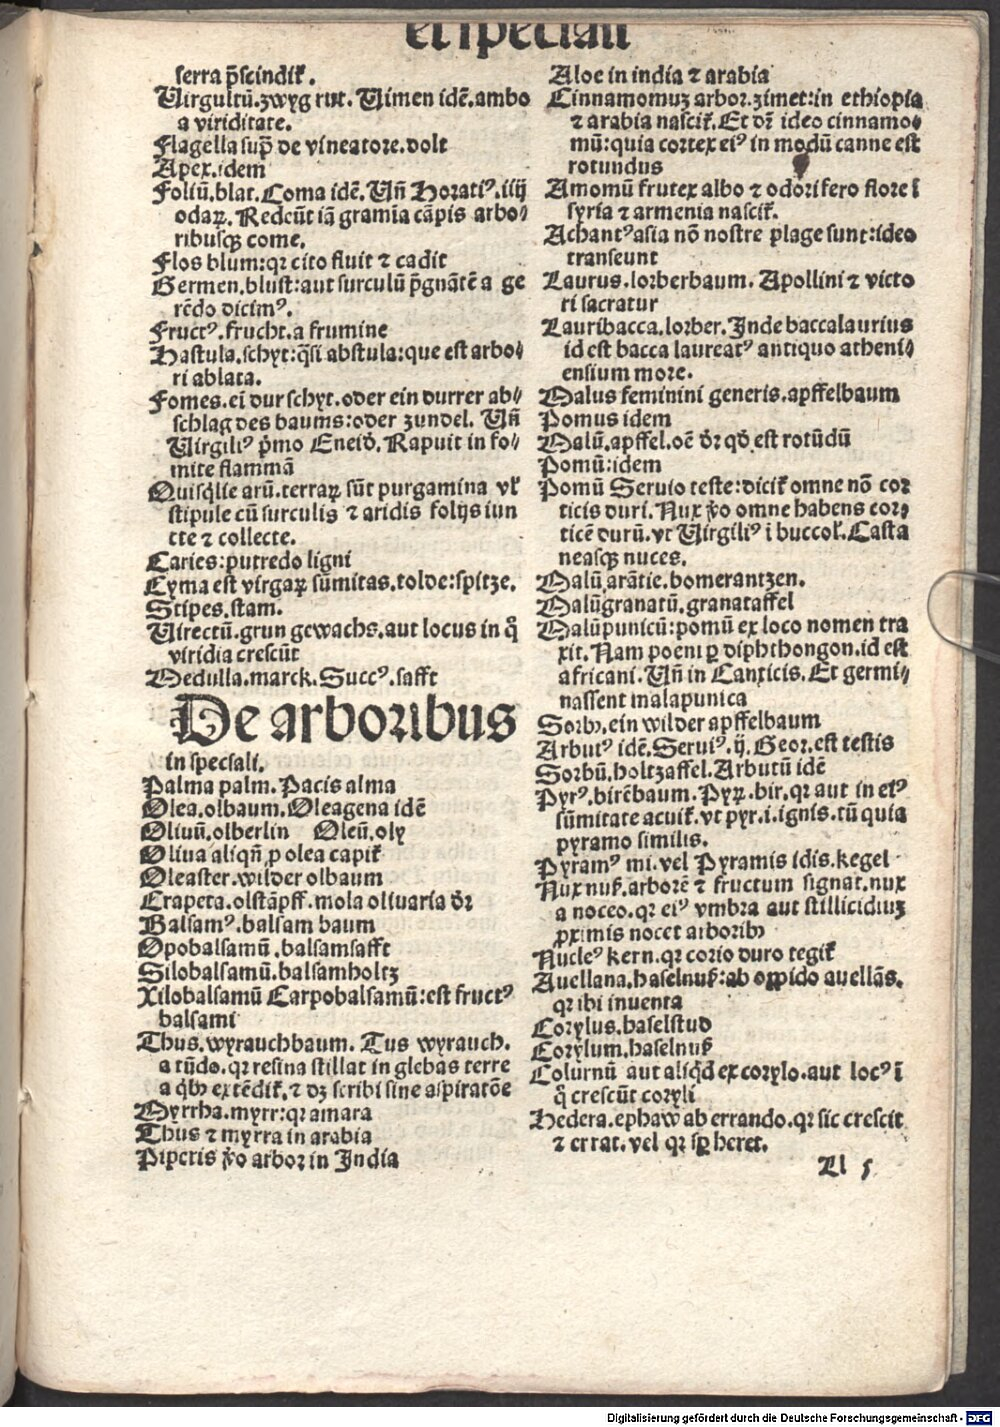 et speciali
serra p̄scindit᷑.
Virgultū.zwyg růt. Vimen idē.ambo
a viriditate.
Flagella sup̄ de vineatore.dolt
Apex.idem
Foliū.blat.Coma idē.Vn̄ Horatiꝰ.iiij
odaꝝ. Redeūt iā gramīa cāpis arbo⸗
ribusqꝫ come.
Flos blum:qꝛ cito fluit ⁊ cadit
Germen.blust:aut surculū p̄gnātē a ge
rēdo dicimꝰ.
Fructꝰ.frucht.a frumine
Hastula.schyt:q̄si abstula:que est arbo⸗
ri ablata.
Fomes.eī dur schyt.oder ein durrer ab⸗
schlag des baums:oder zundel. Vn̄
Virgiliꝰ p̄mo Eneid̄. Rapuit in fo⸗
mite flammā
Quisq̄lie arū.terraꝝ sūt purgamina vl̓
stipule cū surculis ⁊ aridis folijs iun
cte ⁊ collecte.
Caries:putredo ligni
Cyma est virgaꝝ sūmitas.tolde:spitze.
Stipes.stam.
Virectū.grun gewachs.aut locus in q̄
viridia crescūt
Medulla.marck.Succꝰ.safft
De arboribus
in speciali.
Palma palm. Pacis alma
Olea.olbaum.Oleagena idē
Oliuū.olberlin Oleū.oly
Oliua aliqn̄ ꝓ olea capit᷑
Oleaster.wilder olbaum
Trapeta.olstāpff.mola oliuaria d̄r
Balsamꝰ.balsam baum
Opobalsamū.balsamsafft
Silobalsamū.balsamholtz
Xilobalsamū Carpobalsamū:est fructꝰ
balsami
Thus.wyrauchbaum. Tus wyrauch.
a tūdo.qꝛ resina stillat in glebas terre
a q̄bꝰ extēdit᷑.⁊ dꝫ scribi sine aspiratōe
Myrrha.myrr:qꝛ amara
Thus ⁊ myrra in arabia
Piperis v̄o arbor in India
Aloe in india ⁊ arabia
Cinnamomuꝫ arbor.zimet:in ethiopia
⁊ arabia nascit᷑.Et dr̄ ideo cinnamo⸗
mū:quia cortex eiꝰ in modū canne est
rotundus
Amomū frutex albo ⁊ odorifero flore ī
syria ⁊ armenia nascit᷑.
Achantꝰ asia nō nostre plage sunt:ideo
transeunt
Laurus.lorberbaum. Apollini ⁊ victo
ri sacratur
Lauribacca.lorber.Inde baccalaurius
id est bacca laureatꝰ antiquo atheni⸗
ensium more.
Malus feminini generis.apffelbaum
Pomus idem
Malū.apffel.oē d̄r qd̄ est rotūdū
Pomū:idem
Pomū Seruio teste:dicit᷑ omne nō cor
ticis duri. Nux v̄o omne habens cor⸗
ticē durū.vt Virgiliꝰ ī buccol̓.Casta
neasqꝫ nuces.
Malū arātie.bomerantzen.
Malūgranatū.granataffel
Malūpunicū:pomū ex loco nomen tra
xit.Nam poeni ꝑ diphthongon.id est
africani. Vn̄ in Canticis. Et germi⸗
nassent malapunica
Sorbꝰ.ein wilder apffelbaum
Arbutꝰ idē.Seruiꝰ.ij.Geor.est testis
Sorbū.holtzaffel.Arbutū idē
Pyrꝰ.birēbaum.Pyꝝ.bir.qꝛ aut in eiꝰ
sūmitate acuit᷑.vt pyr.i.ignis.tū quia
pyramo similis.
Pyramꝰ mi.vel Pyramis idis.kegel
Nux nuß.arborē ⁊ fructum signat.nux
a noceo.qꝛ eiꝰ vmbra aut stillicidiuꝫ
ꝓximis nocet arboribꝰ
Nucleꝰ kern.qꝛ corio duro tegit᷑
Auellana.haselnuß:ab oppido auellās.
qꝛ ibi inuenta
Corylus.haselstud
Corylum.haselnuß
Colurnū aut aliqd̄ ex corylo.aut locꝰ ī
q̄ crescūt coryli
Hedera.ephaw ab errando.qꝛ sic crescit
⁊ errat.vel qꝛ sp̄ heret.
Ll 5
Digitalisierung gefördert durch die Deutsche Forschungsgemeinschaft - DFG